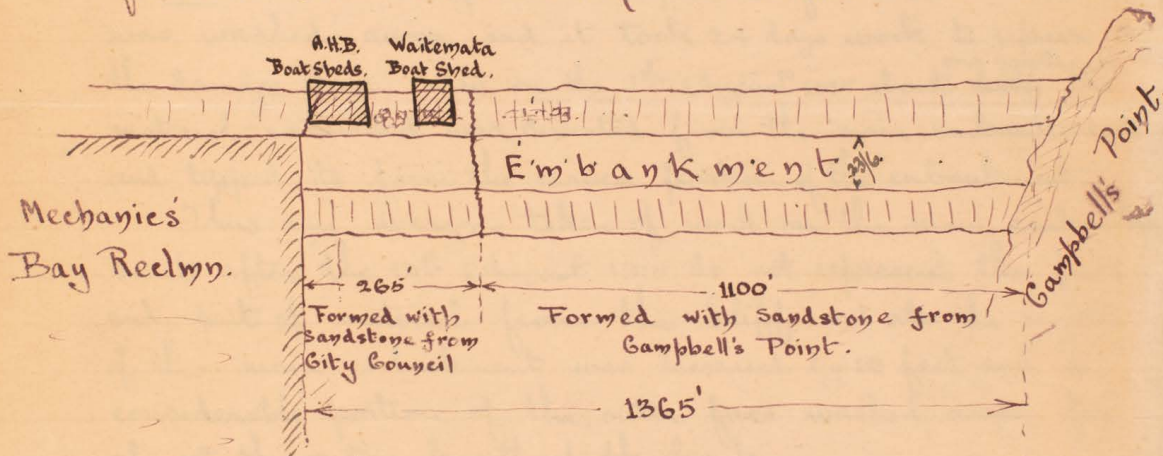 A.H.B.
Boat Sheds.
Waitemata
Boat Shed.
Embankment
Mechanics'
Bay Reclmn.
Campbell's Point
265'
1100'
Formed with
Sandstone from
City Council
Formed with Sandstone from
Campbell's Point.
1365'